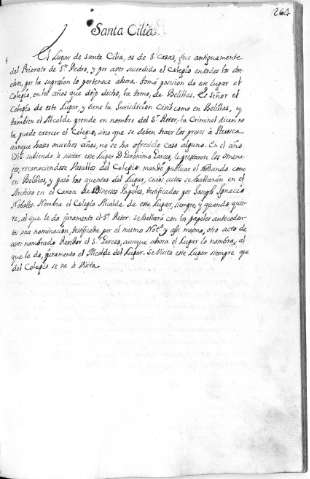 262
Santa Cilia
El Lugar de Santa Cilia, es de 8 Casas, fue antiguamente
del Priorato de Sn. Pedro, y por aver sucedido el Colegio en todos los de-
chos, por la supresion le pertenece ahora. tomó posesion de este Lugar el
Colegio, en el año que dejo dicho, la tomó, de Bellestar. El Señor el
Colegio de este Lugar y tiene la Jurisdicion Civil como en Bellestar, y
tambien el Alcalde prende en nombre del Sr. Retor, la Criminal dicen no
la puede exercer el Colegio, sino que se deben traer los presos a Huesca
aunque hace muchos años, no se ha ofrecido Caso alguno. En el año
subiendo a visitar este Lugar D. Geronimo Dorcas, le presentaron los
reconociendose Vasallos del Colegio mandó publicar el
en Bellestar, y pasó las quentas del Lugar, cuios actos se hallarán en el
Archivo en el Canon de Diversos Papeles, testificados por Joseph Ignacio
Nombra el Colegio Alcalde de este Lugar, siempre y quando quie-
re, el que le da juramento el Sr. Retor. se hallará con los papeles anteceden-
tes una nominacion, testificada por el mismo Not.º y assi mismo, otro acto de
aver nombrado Alcalde el Sr. Dorcas, aunque ahora el Lugar lo nombra, al
que le da juramento el Alcalde del Lugar. Se visita este Lugar siempre que
del Colegio se va a Visita.